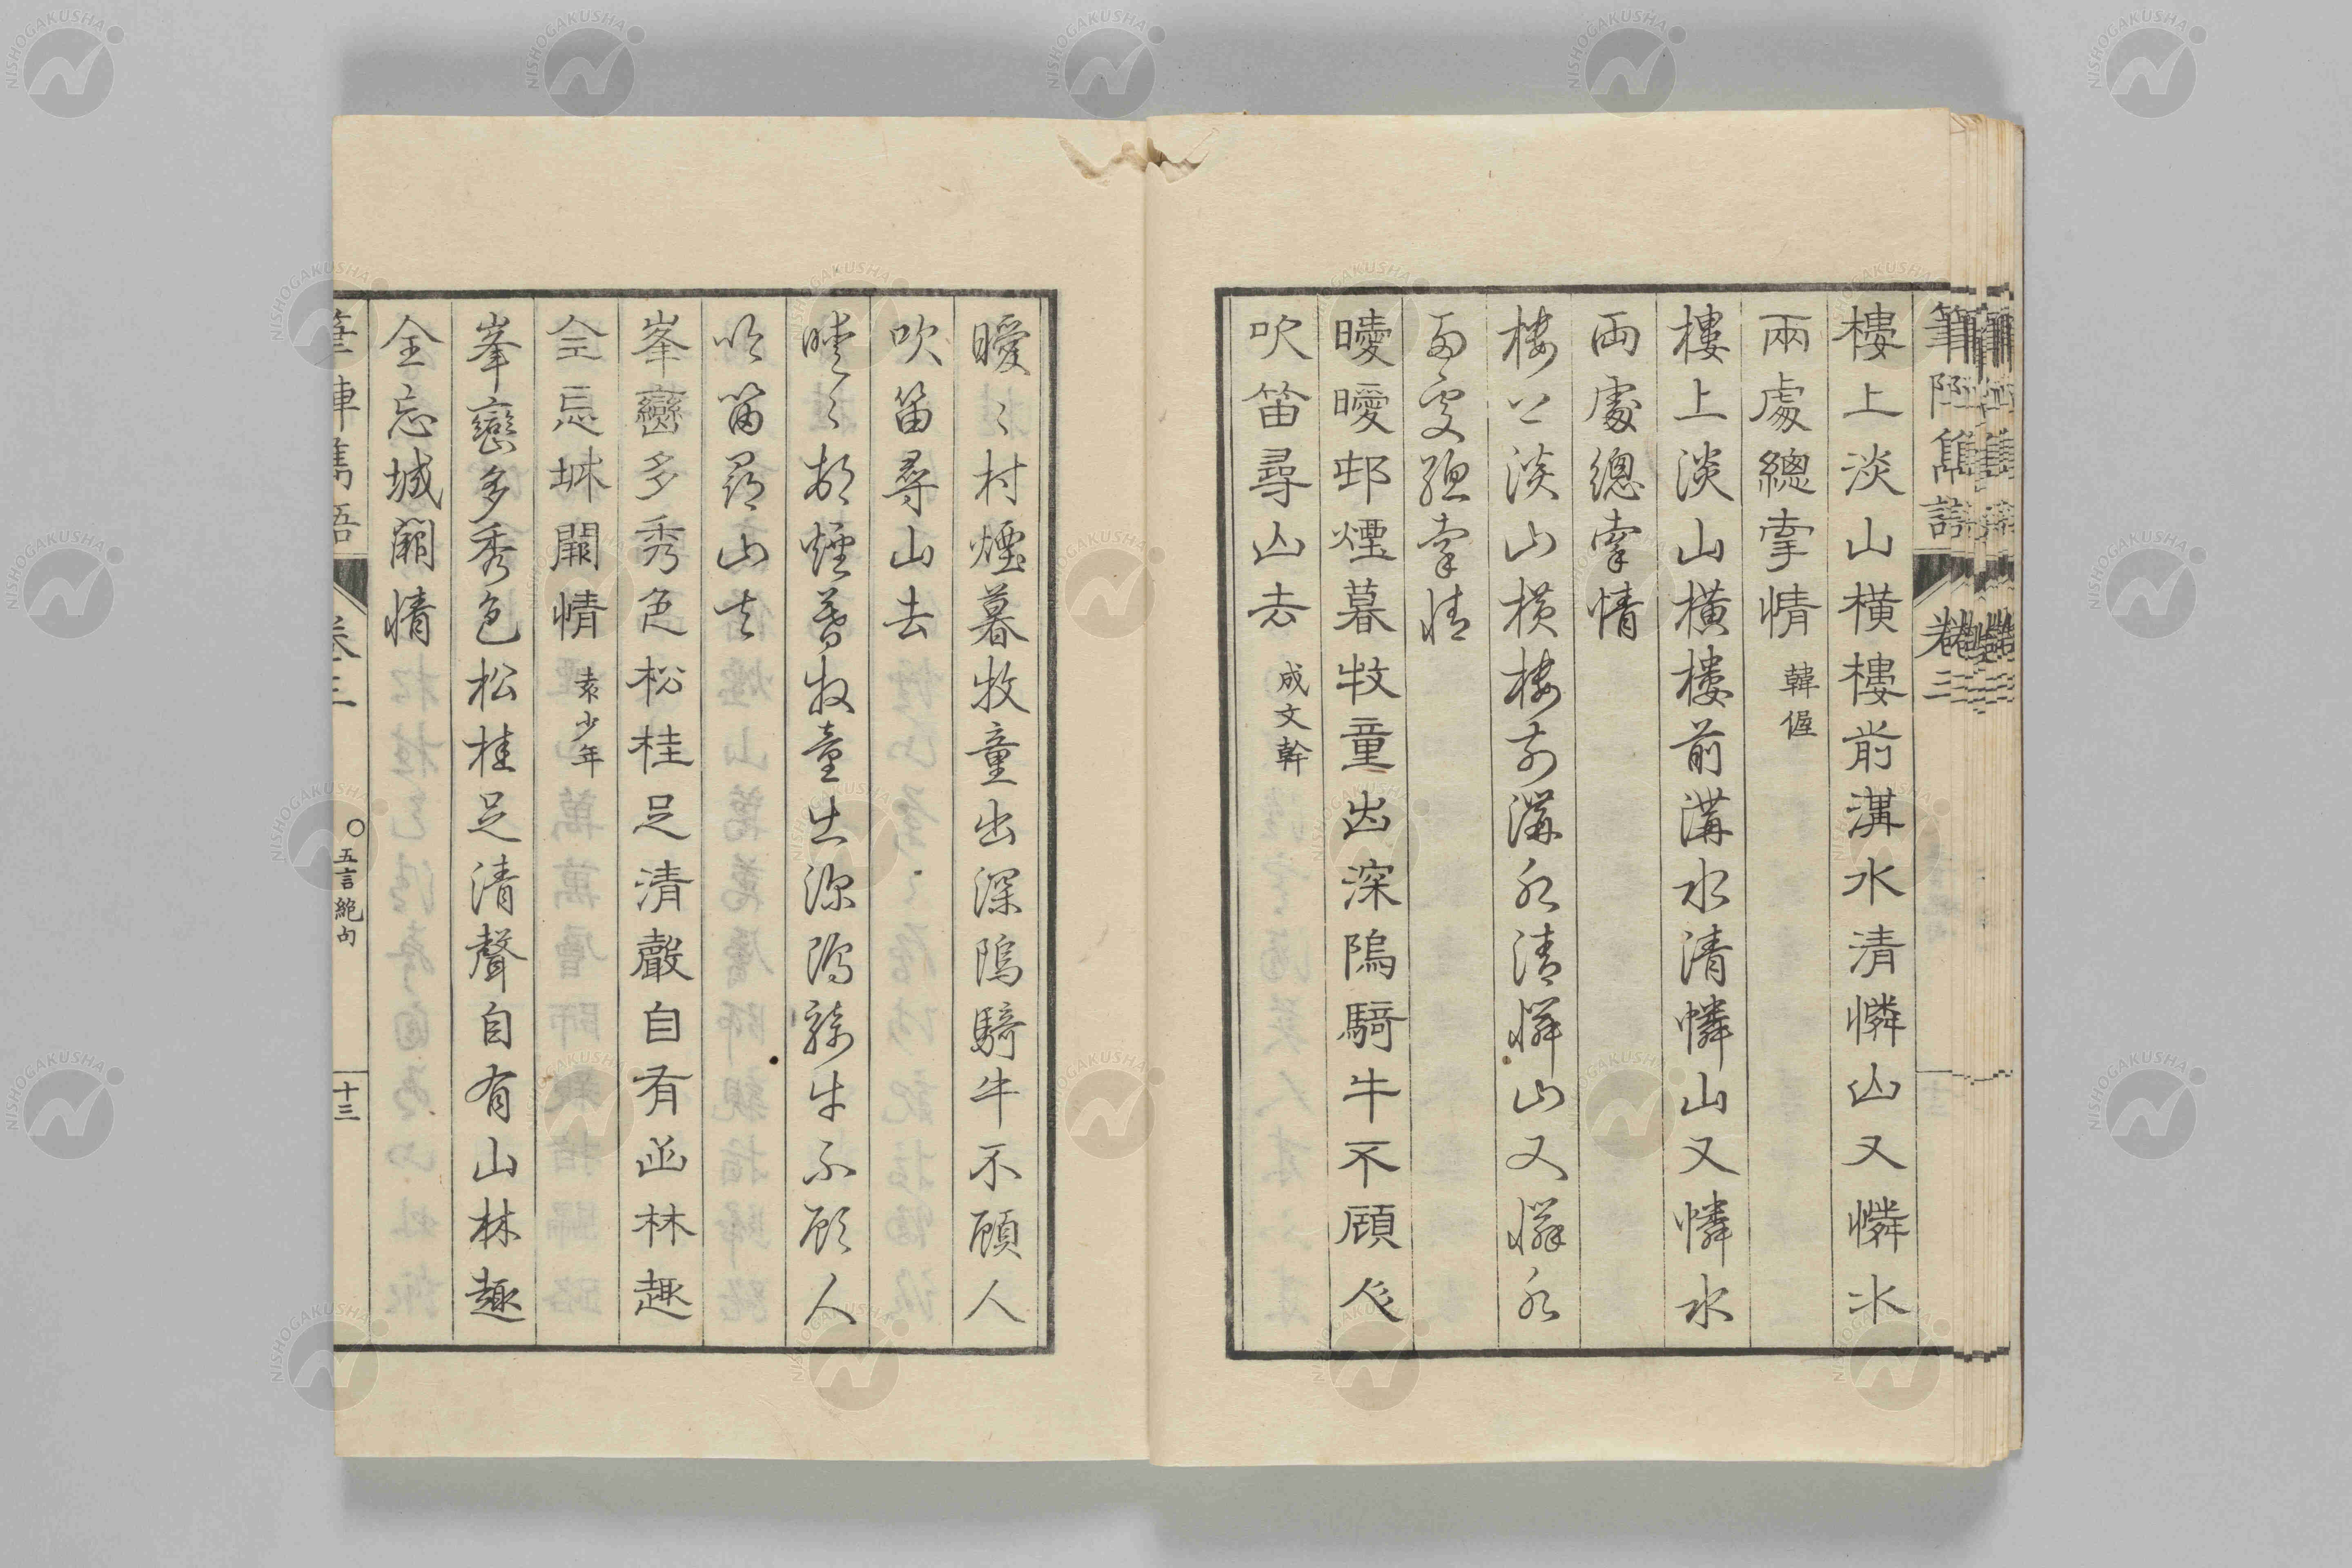 筆陣雋語 卷三
樓上淡山橫樓前溝水清憐山又憐水
兩處總牽情 韓偓
樓上淡山橫樓前溝水清憐山又憐水
兩處總牽情
樓上淡山橫樓前溝水清憐山又憐水
兩處總牽情
曖曖邨煙暮牧童出深隖騎牛不顧人
吹笛尋山去 成文幹
曖〻村煙暮牧童出深隖騎牛不顧人
吹笛尋山去
曖〻村煙暮牧童出深隖騎牛不顧人
吹笛尋山去
峯巒多秀色松桂足清聲自有山林趣
全忘城闕情 袁少年
峯巒多秀色松桂足清聲自有山林趣
全忘城闕情
筆陣雋語 卷三 〇五言絕句 十三
NISHOGAKUSHA